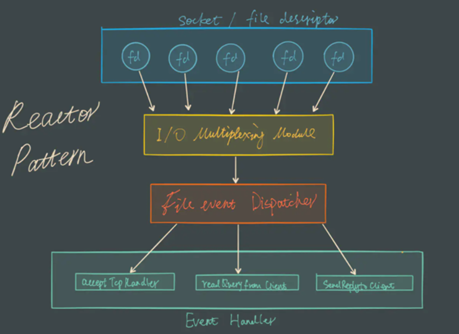 Socket / file descriptor
fd fd fd fd fd
Reactor
Pattern
I/O Multiplexing Module
File event Dispatcher
accept Tcp Handler
read Query from Client
Send Reply to Client
Event Handler